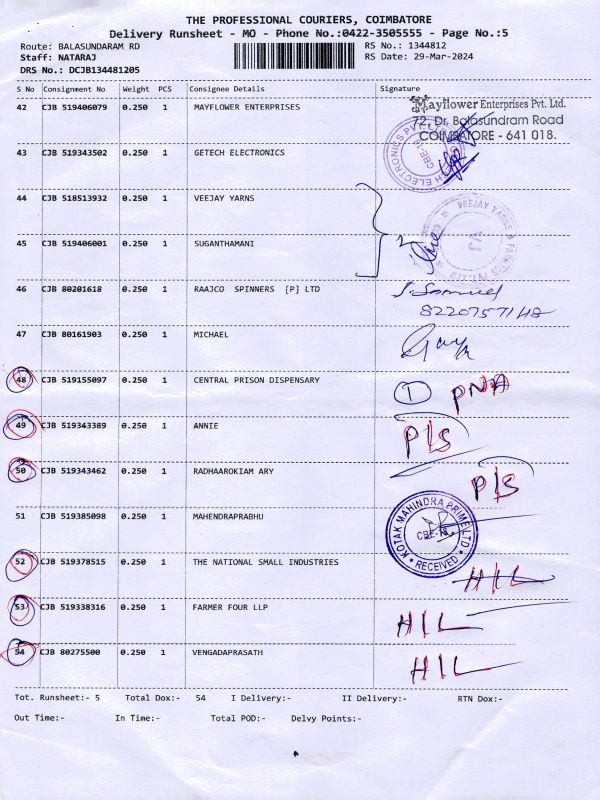 THE PROFESSIONAL COURIERS, COIMBATORE
Delivery Runsheet - MO - Phone No.:0422-3505555 - Page No.:5
Route: BALASUNDARAM RD RS No.: 1344812
Staff: NATARAJ RS Date: 29-Mar-2024
DRS No.: DCJB134481205
S No Consignment No Weight PCS Consignee Details Signature
42 CJB 519406079 0.250 1 MAYFLOWER ENTERPRISES
Mayflower Enterprises Pvt. Ltd.
72, Dr. Balasundram Road
COIMBATORE - 641 018.
43 CJB 519343502 0.250 1 GETECH ELECTRONICS
CBE-18
44 CJB 518513932 0.250 1 VEEJAY YARNS
45 CJB 519406001 0.250 1 SUGANTHAMANI
46 CJB 80201618 0.250 1 RAAJCO SPINNERS [P] LTD
S. Samuel
8220757148
47 CJB 80161903 0.250 1 MICHAEL
48 CJB 519155097 0.250 1 CENTRAL PRISON DISPENSARY 1 PNA
49 CJB 519343389 0.250 1 ANNIE P/S
50 CJB 519343462 0.250 1 RADHAAROKIAM ARY P/S
51 CJB 519385098 0.250 1 MAHENDRAPRABHU
KOTAK MAHINDRA PRIME LTD
RECEIVED
52 CJB 519378515 0.250 1 THE NATIONAL SMALL INDUSTRIES HIL
53 CJB 519338316 0.250 1 FARMER FOUR LLP HIL
54 CJB 80275500 0.250 1 VENGADAPRASATH HIL
Tot. Runsheet:- 5 Total Dox:- 54 I Delivery:- II Delivery:- RTN Dox:-
Out Time:- In Time:- Total POD:- Delvy Points:-